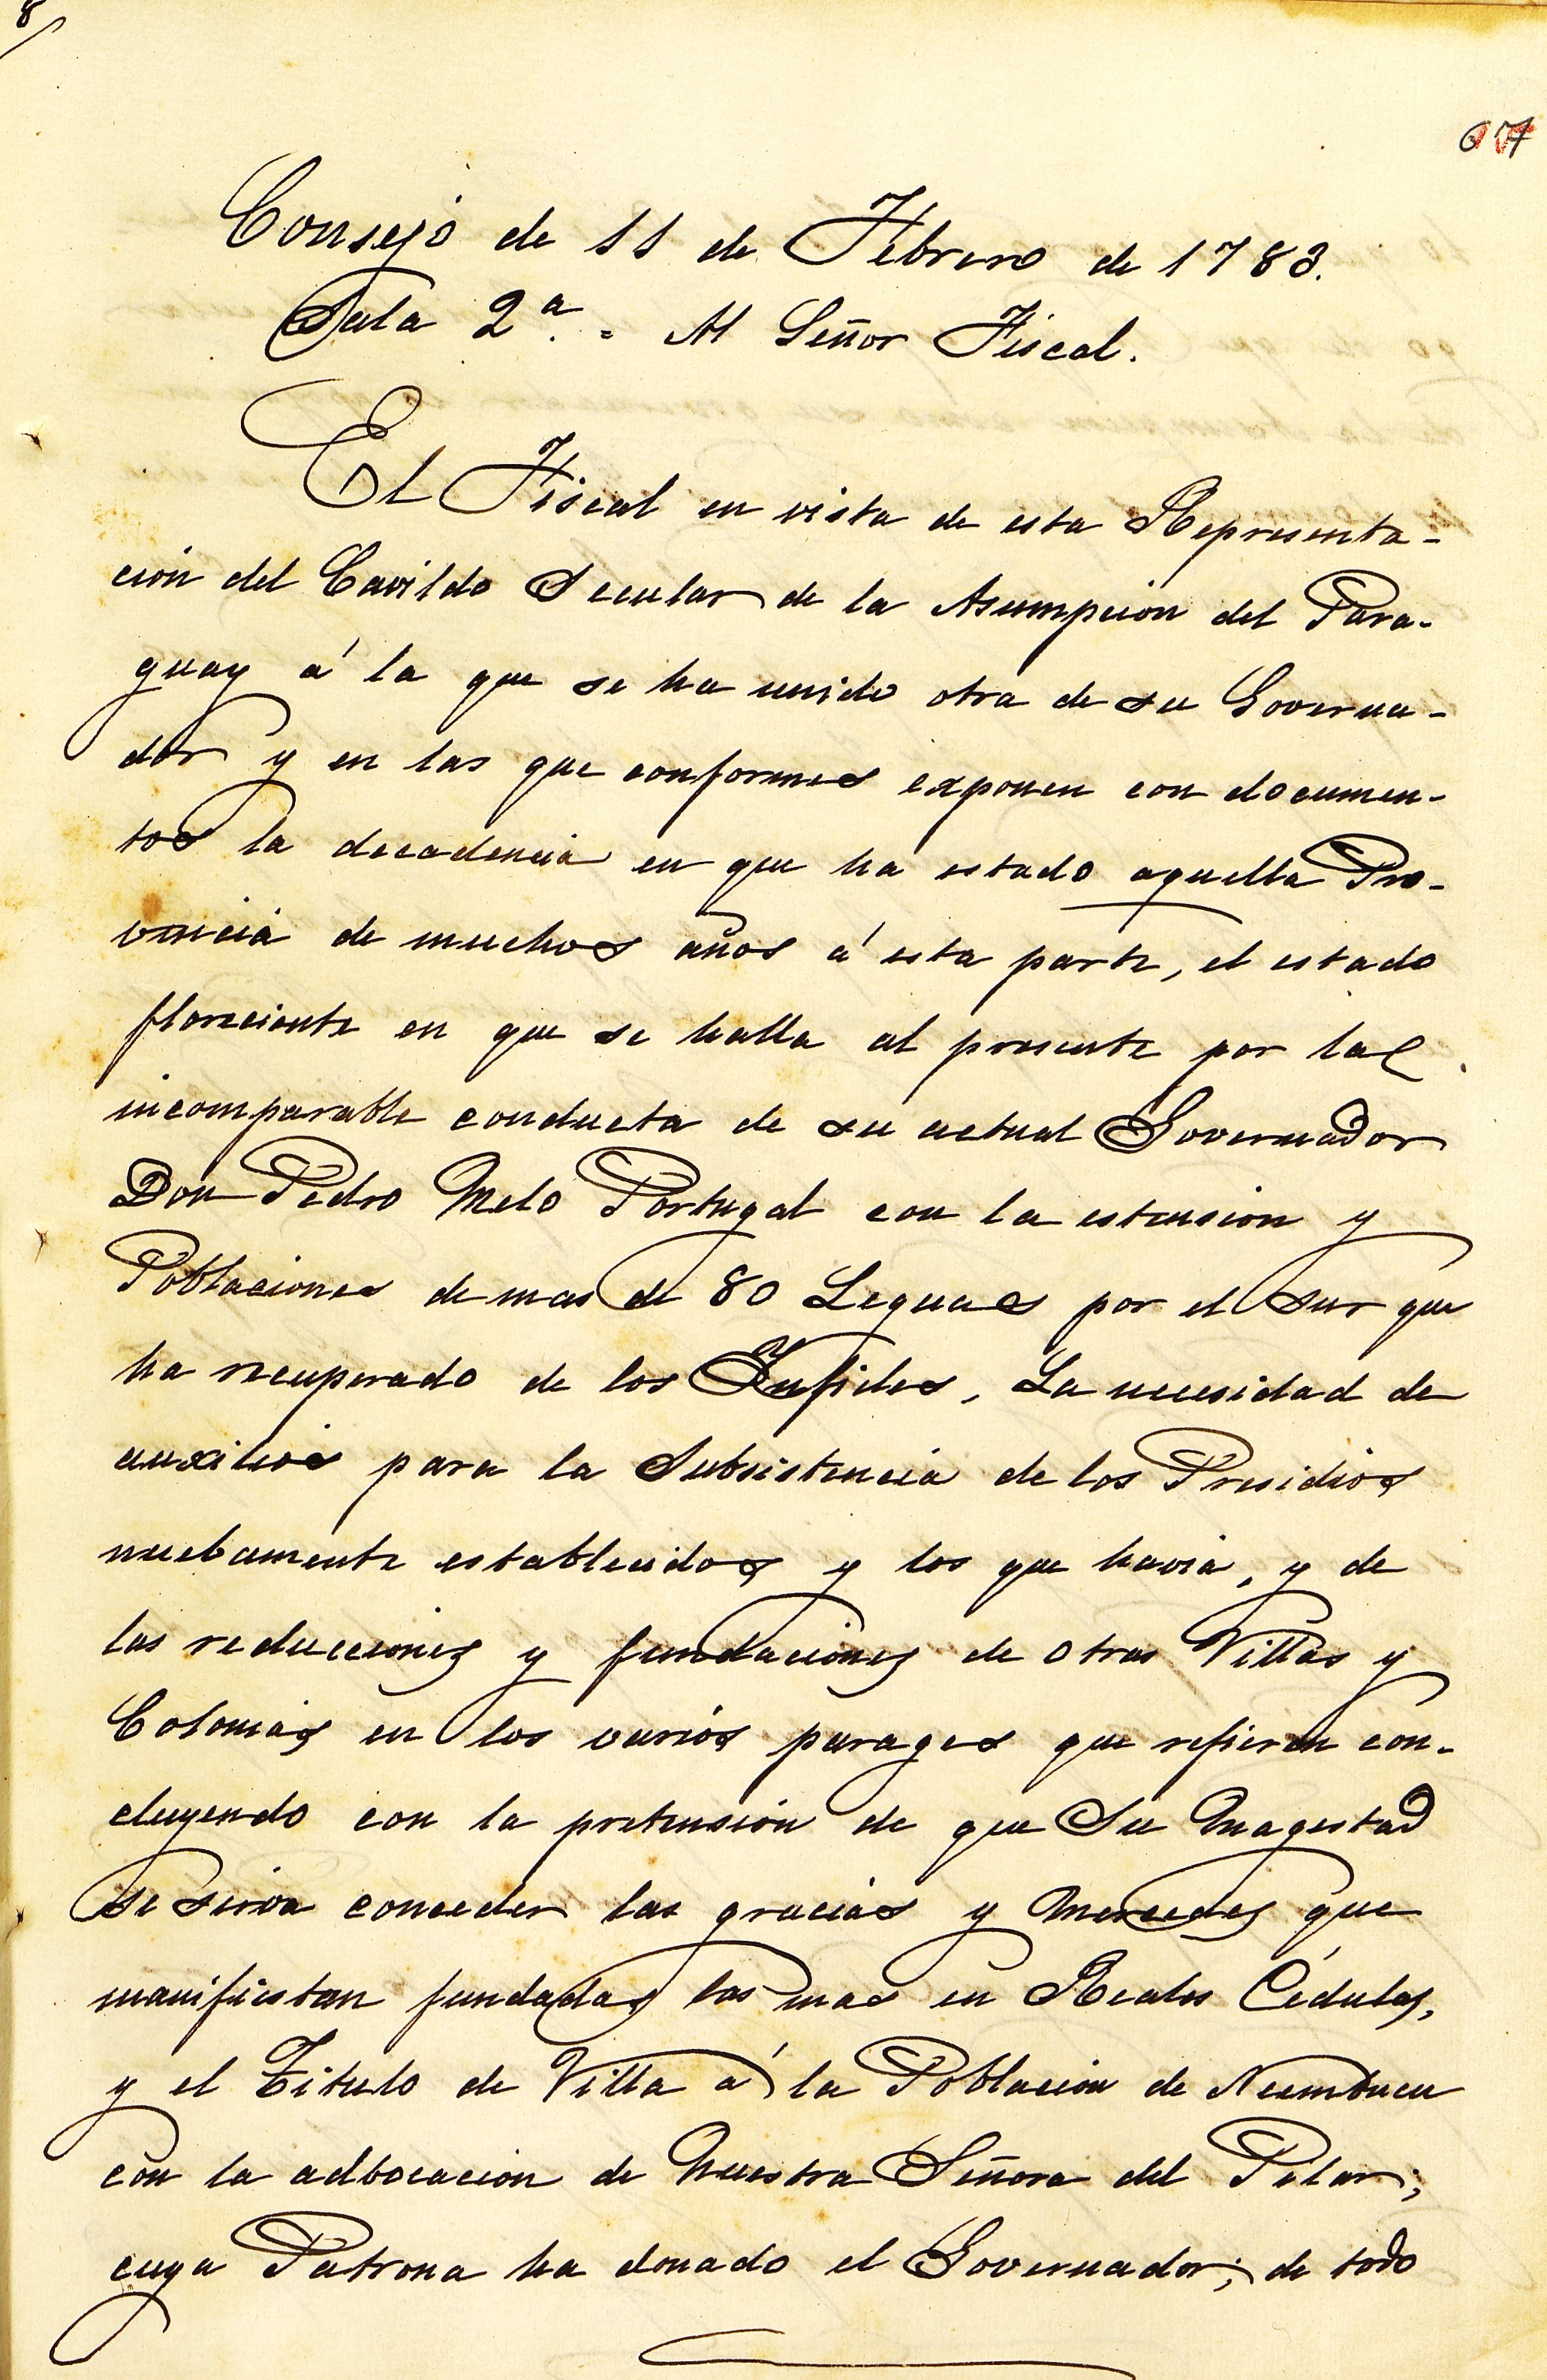 8
67
Consejo de 11 de Febrero de 1783.
Sala 2ª. = Al Señor Fiscal.
El Fiscal en vista de esta Representa-
ción del Cavildo Secular de la Asumpcion del Para-
guay á la que se ha unido otra de su Governa-
dor y en las que conformes exponen con documen-
tos la decadencia en que ha estado aquella Pro-
vincia de muchos años á esta parte, el estado
floreciente en que se halla al presente por la
incomparable conducta de su actual Governador
Don Pedro Melo Portugal con la estension y
Poblaciones de mas de 80 Leguas por el Sur que
ha recuperado de los Infieles, La necesidad de
auxilios para la Subsistencia de los Presidios
nuebamente establecidos y los que havia, y de
las reducciones y fundaciones de otras Villas y
Colonias en los varios parages que refieren con-
cluyendo con la pretension de que Su Magestad
se sirva conceder las gracias y Mercedes que
manifiestan fundadas las mas en Reales Cédulas,
y el Titulo de Villa á la Poblacion de Neembucu
con la adbocacion de Nuestra Señora del Pilar;
cuya Patrona ha donado el Governador; de todo